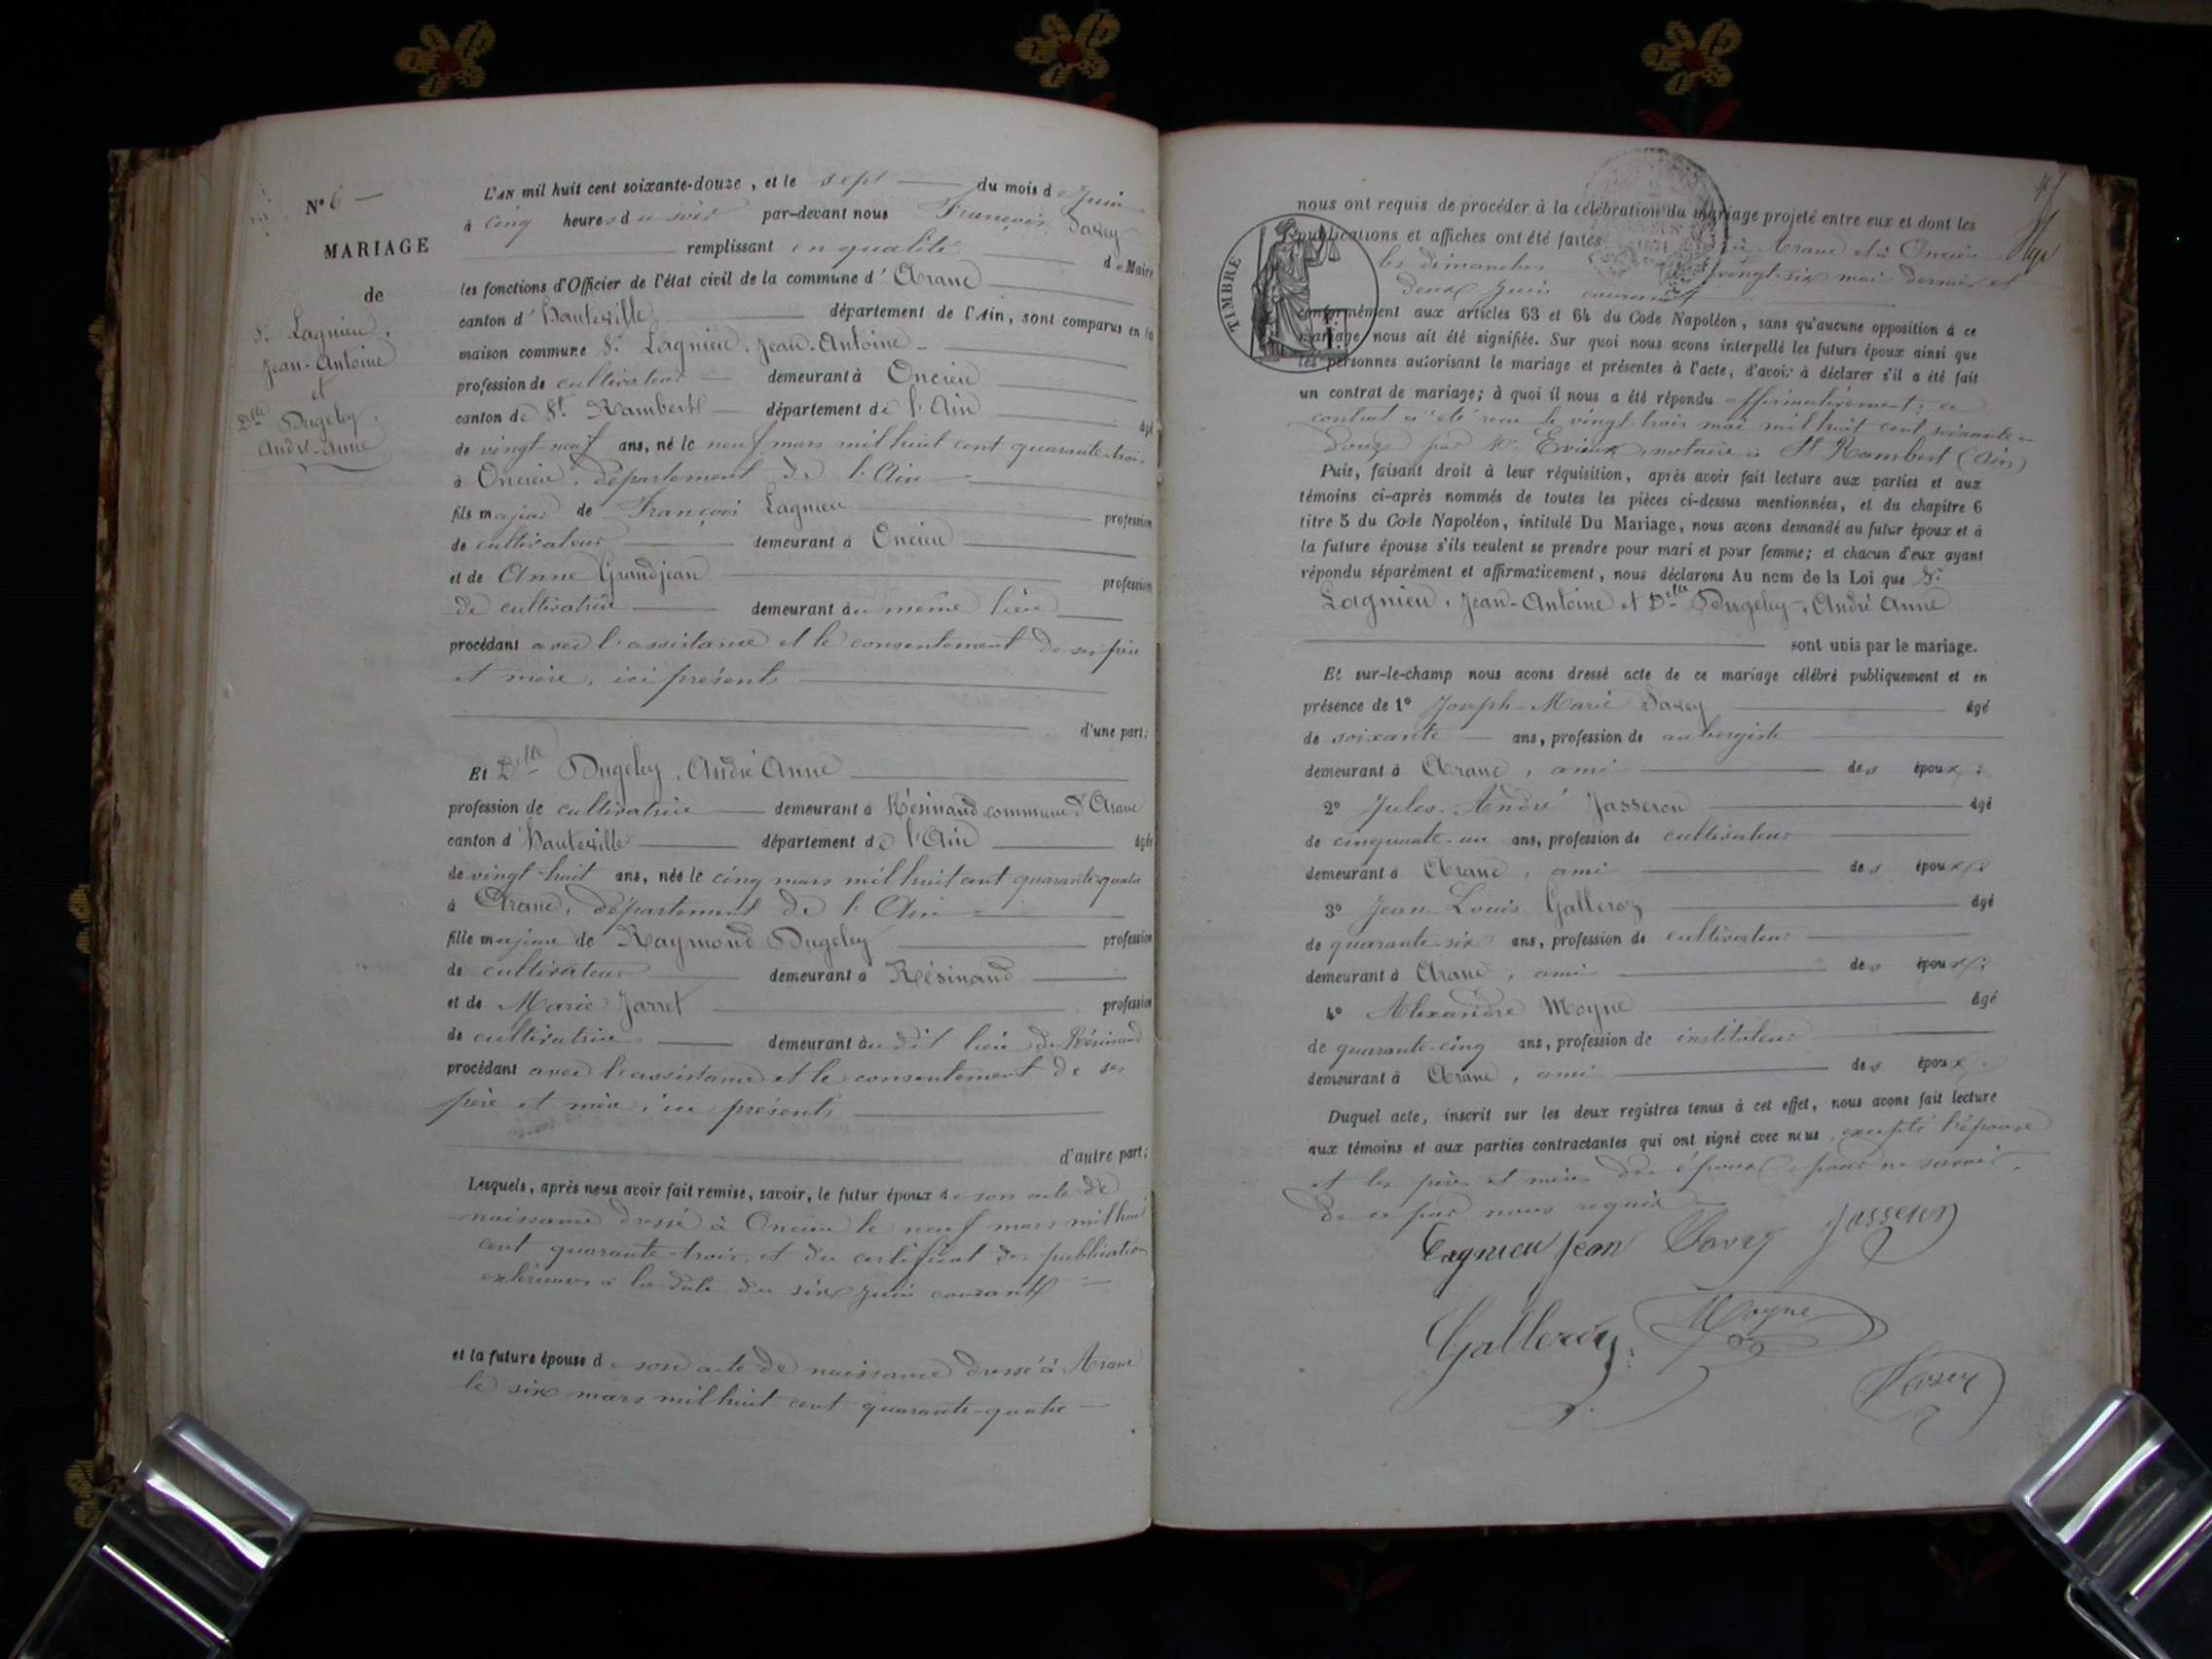 N° 6
MARIAGE
de
Sr. Lagnieu,
Jean-Antoine
et
Dlle Dugeley,
André-Anne
L'AN mil huit cent soixante-douze, et le sept du mois de Juin
à cinq heures du soir par-devant nous François Savey
remplissant en qualité de Maire
les fonctions d'Officier de l'état civil de la commune d'Aranc
canton d'Hauteville département de l'Ain, sont comparus en la
maison commune Sr. Lagnieu, Jean-Antoine
profession de cultivateur demeurant à Oncieu
canton de St. Rambert département de l'Ain âgé
de vingt-neuf ans, né le neuf mars mil huit cent quarante-trois
à Oncieu, département de l'Ain
fils majeur de François Lagnieu profession
de cultivateur demeurant à Oncieu
et de Anne Grandjean profession
de cultivatrice demeurant au même lieu
procédant avec l'assistance et le consentement de ses père
et mère, ici présents
d'une part;
Et Dlle Dugeley, André Anne
profession de cultivatrice demeurant à Résinand commune d'Aranc
canton d'Hauteville département de l'Ain âgée
de vingt-huit ans, née le cinq mars mil huit cent quarante-quatre
à Aranc, département de l'Ain
fille majeure de Raymond Dugeley profession
de cultivateur demeurant à Résinand
et de Marie Jarret profession
de cultivatrice demeurant au dit lieu de Résinand
procédant avec l'assistance et le consentement de ses
père et mère, ici présents
d'autre part;
Lesquels, après nous avoir fait remise, savoir, le futur époux de son acte de
naissance dressé à Oncieu le neuf mars mil huit
cent quarante-trois, et du certificat de publication
extérieure à la date du six juin courant
et la future épouse de son acte de naissance dressé à Aranc
le six mars mil huit cent quarante-quatre
nous ont requis de procéder à la célébration du mariage projeté entre eux et dont les
publications et affiches ont été faites à Aranc et à Oncieu
les dimanches vingt-six mai dernier et
deux juin courant
TIMBRE
conformément aux articles 63 et 64 du Code Napoléon, sans qu'aucune opposition à ce
mariage nous ait été signifiée. Sur quoi nous avons interpellé les futurs époux ainsi que
les personnes autorisant le mariage et présentes à l'acte, d'avoir à déclarer s'il a été fait
un contrat de mariage; à quoi il nous a été répondu affirmativement; ce
contrat a été reçu le vingt-trois mai mil huit cent soixante-
douze par Me Evieux, notaire à St Rambert (Ain)
Puis, faisant droit à leur réquisition, après avoir fait lecture aux parties et aux
témoins ci-après nommés de toutes les pièces ci-dessus mentionnées, et du chapitre 6
titre 5 du Code Napoléon, intitulé Du Mariage, nous avons demandé au futur époux et à
la future épouse s'ils veulent se prendre pour mari et pour femme; et chacun d'eux ayant
répondu séparément et affirmativement, nous déclarons Au nom de la Loi que Sr.
Lagnieu, Jean-Antoine et Dlle Dugeley, André Anne
sont unis par le mariage.
Et sur-le-champ nous avons dressé acte de ce mariage célébré publiquement et en
présence de 1° Joseph-Marie Savey âgé
de soixante ans, profession de aubergiste
demeurant à Aranc, ami des époux;
2° Jules-André Jasseron âgé
de cinquante-un ans, profession de cultivateur
demeurant à Aranc, ami des époux;
3° Jean-Louis Galleroz âgé
de quarante-six ans, profession de cultivateur
demeurant à Aranc, ami des époux;
4° Alexandre Moyne âgé
de quarante-cinq ans, profession de instituteur
demeurant à Aranc, ami des époux.
Duquel acte, inscrit sur les deux registres tenus à cet effet, nous avons fait lecture
aux témoins et aux parties contractantes qui ont signé avec nous, excepté l'épouse
et les pères et mères des époux pour ne savoir,
de ce par nous requis
Lagnieu Jean Savey Jasseron
Galleroz. Moyne
Savey